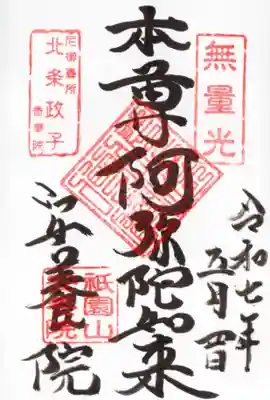 無量光
令和七年
五月四日
本尊阿弥陀如来
北条政子
安養院
祇園山
安養院